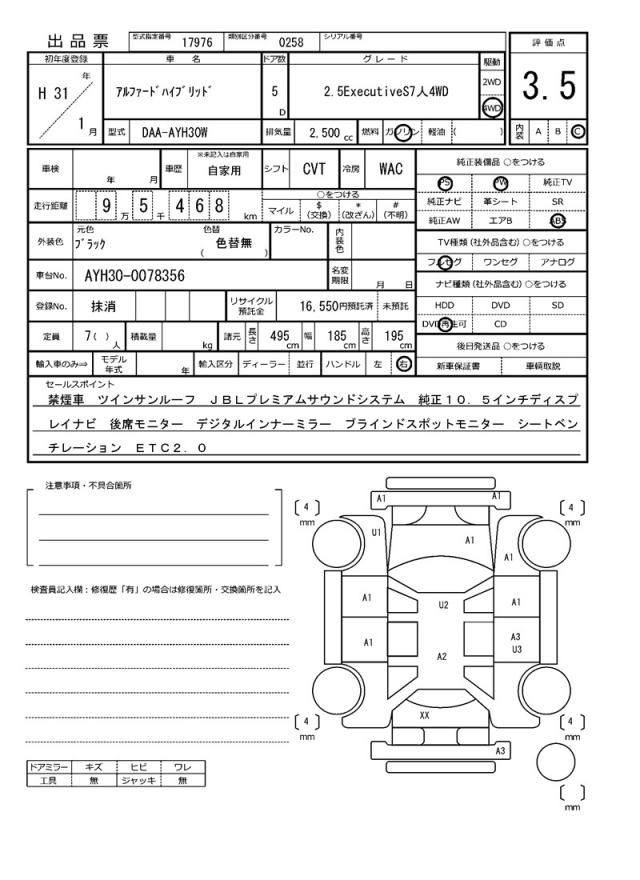 出品票 型式指定番号 17976 類別区分番号 0258 シリアル番号
評価点
3.5
内装 A B C
初年度登録 車名 ドア数 グレード 駆動
H 31 年 1 月 アルファードハイブリッド 5 D 2.5ExecutiveS7人4WD 2WD 4WD
型式 DAA-AYH30W 排気量 2,500 cc 燃料 ガソリン 軽油 ( )
車検 年 月 車歴 ※未記入は自家用 自家用 シフト CVT 冷房 WAC
走行距離 9 万 5 千 4 6 8 km
○をつける
マイル $(交換) *(改ざん) #(不明)
外装色 元色 ブラック 色替 ( 色替無 ) カラーNo. 内装色
車台No. AYH30-0078356 名変期限 月 日
登録No. 抹消 リサイクル預託金 16,550円預託済 未預託
定員 7( )人 積載量 kg 諸元 長さ 495cm 幅 185cm 高さ 195cm
輸入車のみ⇒ モデル年式 年 輸入区分 ディーラー 並行 ハンドル 左 右
純正装備品 ○をつける
PS PW 純正TV
純正ナビ 革シート SR
純正AW エアB ABS
TV種類 (社外品含む) ○をつける
フルセグ ワンセグ アナログ
ナビ種類 (社外品含む) ○をつける
HDD DVD SD
DVD再生可 CD
後日発送品 ○をつける
新車保証書 車輌取説
セールスポイント
禁煙車 ツインサンルーフ JBLプレミアムサウンドシステム 純正10.5インチディスプ
レイナビ 後席モニター デジタルインナーミラー ブラインドスポットモニター シートベン
チレーション ETC2.0
注意事項・不具合箇所
検査員記入欄:修復歴「有」の場合は修復箇所・交換箇所を記入
ドアミラー キズ ヒビ ワレ
工具 無 ジャッキ 無
4 mm
A1 A1
4 mm
U1 A1 A1
A1 U2 A1
A1 A2 A3
U3
4 mm
XX
4 mm
A3
mm